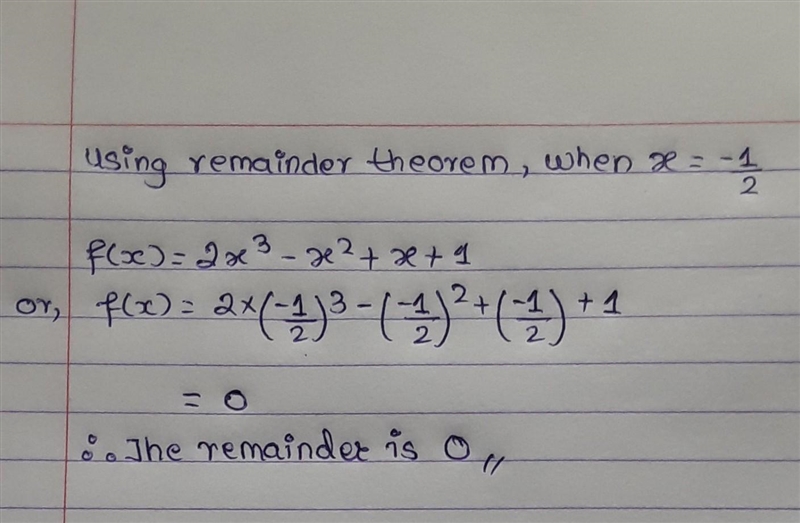 Using remainder theorem, when x = -1/2
f(x) = 2x³ - x² + x + 1
or, f(x) = 2×(-1/2)³ - (-1/2)² + (-1/2) + 1
= 0
∴ The remainder is 0,,